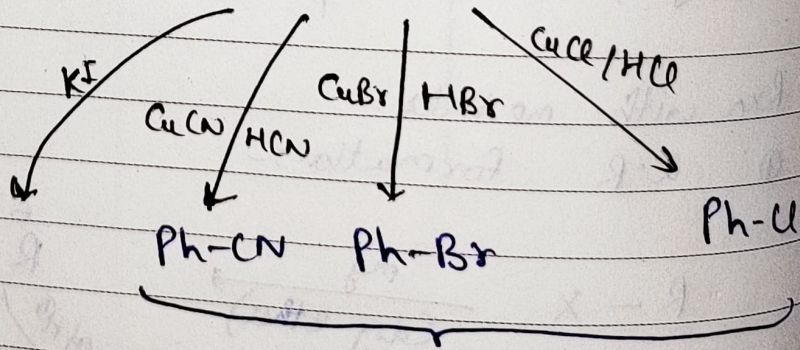 KI
CuCN/HCN
CuBr/HBr
CuCl/HCl
Ph-CN Ph-Br Ph-Cl